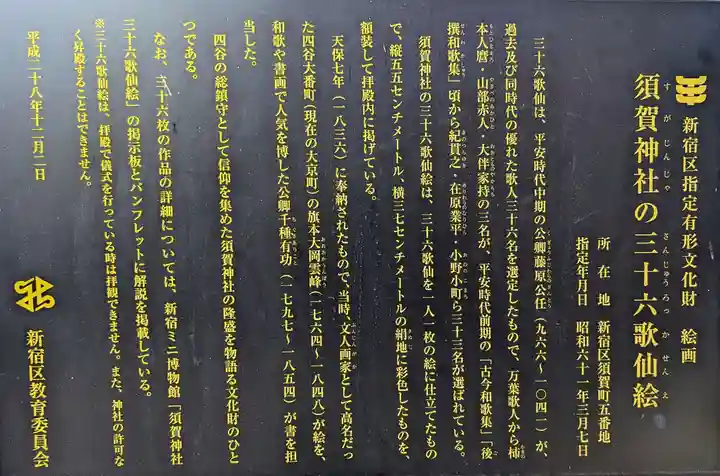 新宿区指定有形文化財　絵画
須賀神社の三十六歌仙絵
所在地　新宿区須賀町五番地
指定年月日　昭和六十一年三月七日
三十六歌仙は、平安時代中期の公卿藤原公任（九六六～一〇四一）が、
過去及び同時代の優れた歌人三十六名を選定したもので、万葉歌人から柿
本人麿・山部赤人・大伴家持の三名が、平安時代前期の「古今和歌集」「後
撰和歌集」頃から紀貫之・在原業平・小野小町ら三十三名が選ばれている。
須賀神社の三十六歌仙絵は、三十六歌仙を一人一枚の絵に仕立てたもの
で、縦五五センチメートル、横三七センチメートルの絹地に彩色したものを、
額装して拝殿内に掲げている。
天保七年（一八三六）に奉納されたもので、当時、文人画家として高名だっ
た四谷大番町（現在の大京町）の旗本大岡雲峰（一七六四～一八四八）が絵を、
和歌や書画で人気を博した公卿千種有功（一七九七～一八五四）が書を担
当した。
四谷の総鎮守として信仰を集めた須賀神社の隆盛を物語る文化財のひと
つである。
なお、三十六枚の作品の詳細については、新宿ミニ博物館「須賀神社
三十六歌仙絵」の掲示板とパンフレットに解説を掲載している。
※三十六歌仙絵は、拝殿で儀式を行っている時は拝観できません。また、神社の許可な
く昇殿することはできません。
平成二十八年十二月二日
新宿区教育委員会